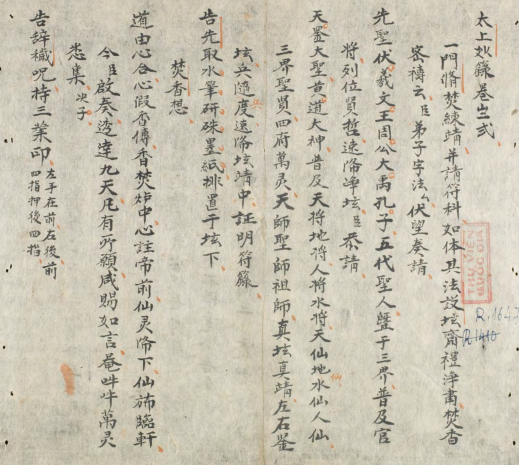 太上妙籙卷之弍
一門脩焚練靖并請符科如体具法設坛齋禮淨畫焚香
密禱云臣弟子字法厶伏望奏請
先聖伏羲文王周公大禹孔子五代聖人曁于三界普及官
將列位賢哲速降坛臣恭請
天罡大聖黄道大神普及天將地將人將水將天仙地水仙人仙
三界聖賢四府萬灵天師聖師祖師真坛真靖左右鉴
坛兵隨度速降坛靖中証明符籙
告先取水筆研硃墨紙排置于坛下
焚香想
道由心合心假香傳香焚炉中心註帝前仙灵降下仙斾臨軒
今臣啟奏逕達九天凡有所願咸賜如言菴吽吽萬灵
悉集次子
告辞穢呪持三業印
左手在前左後前
四指押後四指
THƯ VIỆN
QUỐC GIA
R.1643
R.1410